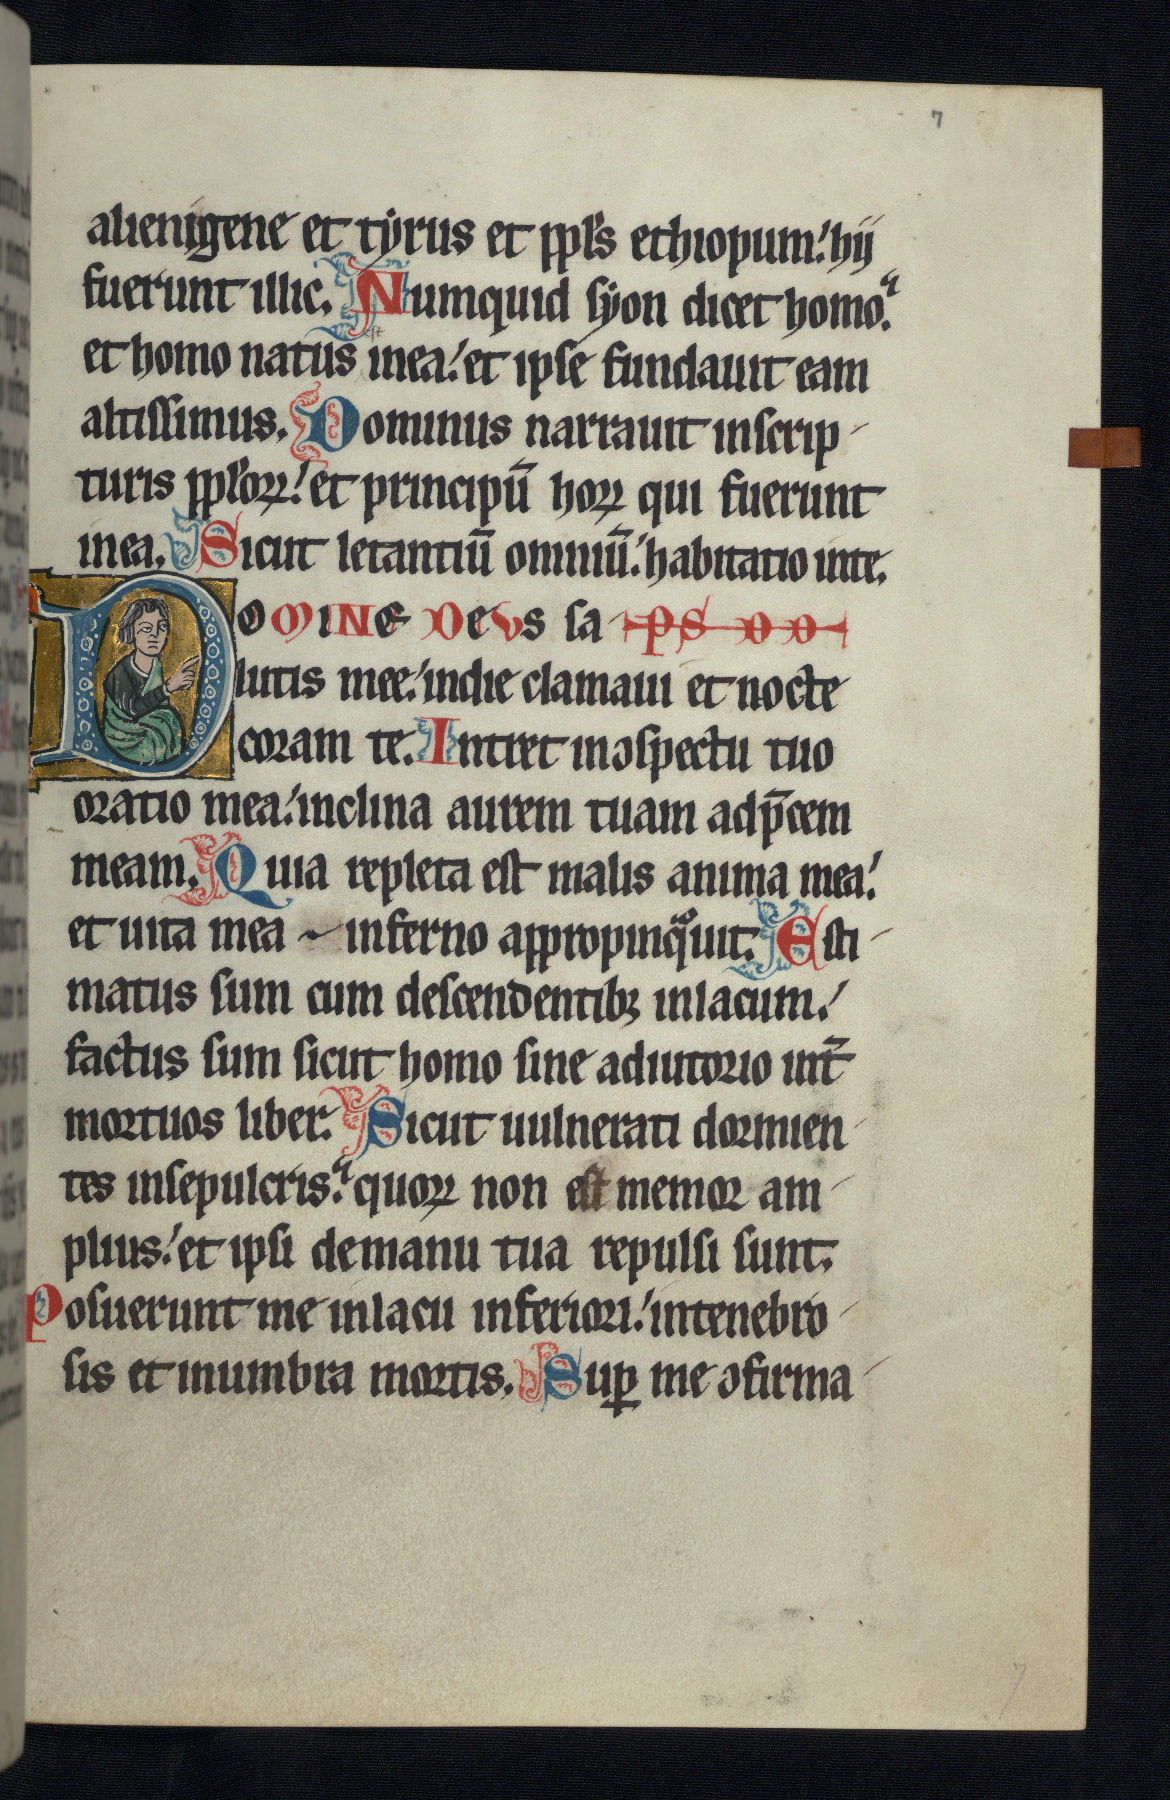 7
alienigene et tyrus et ppl's ethiopum: hij
fuerunt illic. Numquid syon dicet homo?
est
et homo natus inea: et ipse fundauit eam
altissimus. Dominus narrauit inscrip-
turis pplʼoꝝ: et principū hoꝝ qui fuerunt
inea. Sicut letantiū omniū: habitatio inte.
DOMINE DEUS sa PS
lutis mee: indie clamaui et nocte
coram te. Intret inↄspectu tuo
oratio mea: inclina aurem tuam adp̄cem
meam. Quia repleta est malis anima mea:
et uita mea ~ inferno appropinqͣuit. Esti-
matus sum cum descendentibꝫ inlacum:
factus sum sicut homo sine adiutorio int̄
mortuos liber. Sicut uulnerati dormien-
tes insepulcris: quoꝝ non est memor am-
plius: et ipsi demanu tua repulsi sunt.
Posuerunt me inlacu inferiori: intenebro-
sis et inumbra mortis. Suꝑ me ↄfirma-
7